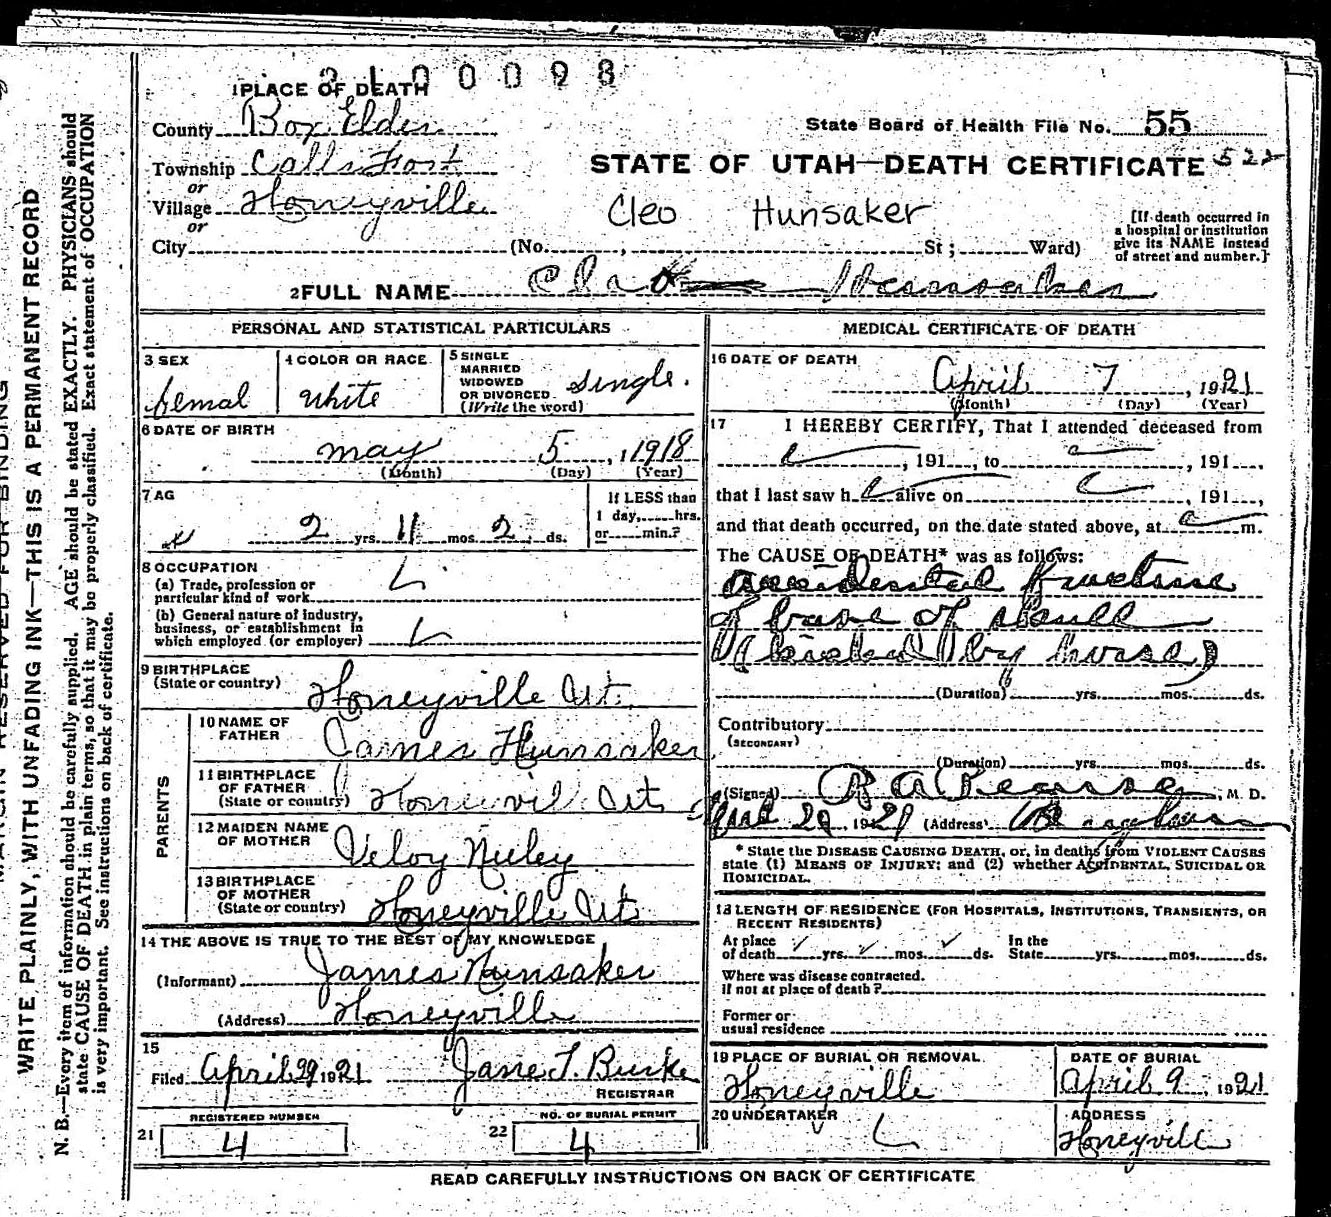 2100098
1 PLACE OF DEATH
County Box Elder
State Board of Health File No. 55
Township Calls Fort
STATE OF UTAH—DEATH CERTIFICATE 522
or
Village Honeyville
Cleo Hunsaker
or
City (No. , St ; Ward)
[If death occurred in a hospital or institution give its NAME instead of street and number.]
2 FULL NAME Hunsaker
PERSONAL AND STATISTICAL PARTICULARS
3 SEX
femal
4 COLOR OR RACE
white
5 SINGLE
MARRIED
WIDOWED
OR DIVORCED
(Write the word)
single.
6 DATE OF BIRTH
may 5, 1918
(Month) (Day) (Year)
7 AG
2 yrs. 11 mos. 2 ds.
If LESS than
1 day, hrs.
or min.?
8 OCCUPATION
(a) Trade, profession or
particular kind of work
(b) General nature of industry,
business, or establishment in
which employed (or employer)
9 BIRTHPLACE
(State or country)
Honeyville Ut.
PARENTS
10 NAME OF
FATHER
James Hunsaker
11 BIRTHPLACE
OF FATHER
(State or country)
Honeyvil Ut
12 MAIDEN NAME
OF MOTHER
Veloy Neeley
13 BIRTHPLACE
OF MOTHER
(State or country)
Honeyville Ut
14 THE ABOVE IS TRUE TO THE BEST OF MY KNOWLEDGE
(Informant) James Hunsaker
(Address) Honeyville
15
Filed April 29 1921 Jane T. Burke
REGISTRAR
REGISTERED NUMBER
21 4
NO. OF BURIAL PERMIT
22 4
MEDICAL CERTIFICATE OF DEATH
16 DATE OF DEATH
April 7, 1921
(Month) (Day) (Year)
17 I HEREBY CERTIFY, That I attended deceased from
, 191 , to , 191 ,
that I last saw h alive on , 191 ,
and that death occurred, on the date stated above, at m.
The CAUSE OF DEATH* was as follows:
accidental fracture
of base of skull
(kicked by horse)
(Duration) yrs. mos. ds.
Contributory
(SECONDARY)
(Duration) yrs. mos. ds.
(Signed) R A Pearse, M. D.
29, 1921 (Address)
* State the DISEASE CAUSING DEATH, or, in deaths from VIOLENT CAUSES
state (1) MEANS OF INJURY; and (2) whether ACCIDENTAL, SUICIDAL OR
HOMICIDAL.
18 LENGTH OF RESIDENCE (FOR HOSPITALS, INSTITUTIONS, TRANSIENTS, OR
RECENT RESIDENTS)
At place
of death yrs. mos. ds.
In the
State yrs. mos. ds.
Where was disease contracted.
if not at place of death?
Former or
usual residence
19 PLACE OF BURIAL OR REMOVAL
Honeyville
DATE OF BURIAL
April 9, 1921
20 UNDERTAKER
ADDRESS
Honeyvill
READ CAREFULLY INSTRUCTIONS ON BACK OF CERTIFICATE
MARGIN RESERVED FOR BINDING
WRITE PLAINLY, WITH UNFADING INK—THIS IS A PERMANENT RECORD
N. B.—Every item of information should be carefully supplied. AGE should be stated EXACTLY. PHYSICIANS should
state CAUSE OF DEATH in plain terms, so that it may be properly classified. Exact statement of OCCUPATION
is very important. See instructions on back of certificate.